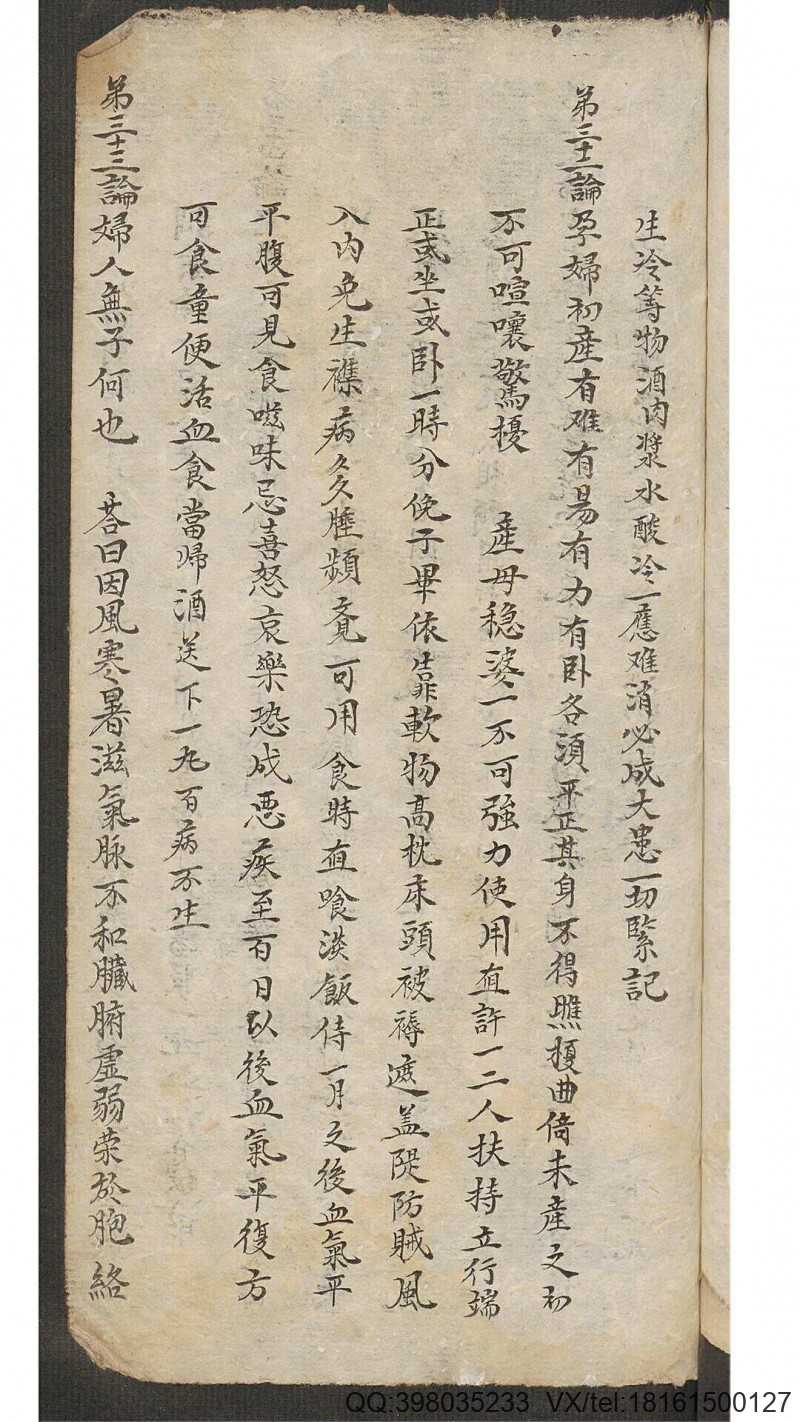 生冷等物酒肉漿水酸冷一應难消必成大患一切緊記
第三十二論孕婦初產有难有易有力有卧各須平正其身不得瞧擾曲倚未產之初
不可喧嚷驚擾 產母穏婆一不可強力使用直許一二人扶持立行端
正或坐或卧一時分俛子畢依靠軟物高枕床頭被褥遮盖隄防賊風
入内免生襍病多睡頻竟可用食時直喰淡飯侍一月之後血氣平
平腹可見食嗞味忌喜怒哀樂恐成悪疾至百日以後血氣平復方
可食童便活血食當帰酒送下一九百病不生
第三十三論婦人無子何也 荅曰因風寒暑滋氣脉不和臟腑虚弱荣於胞絡
QQ:398035233 VX/tel:18161500127